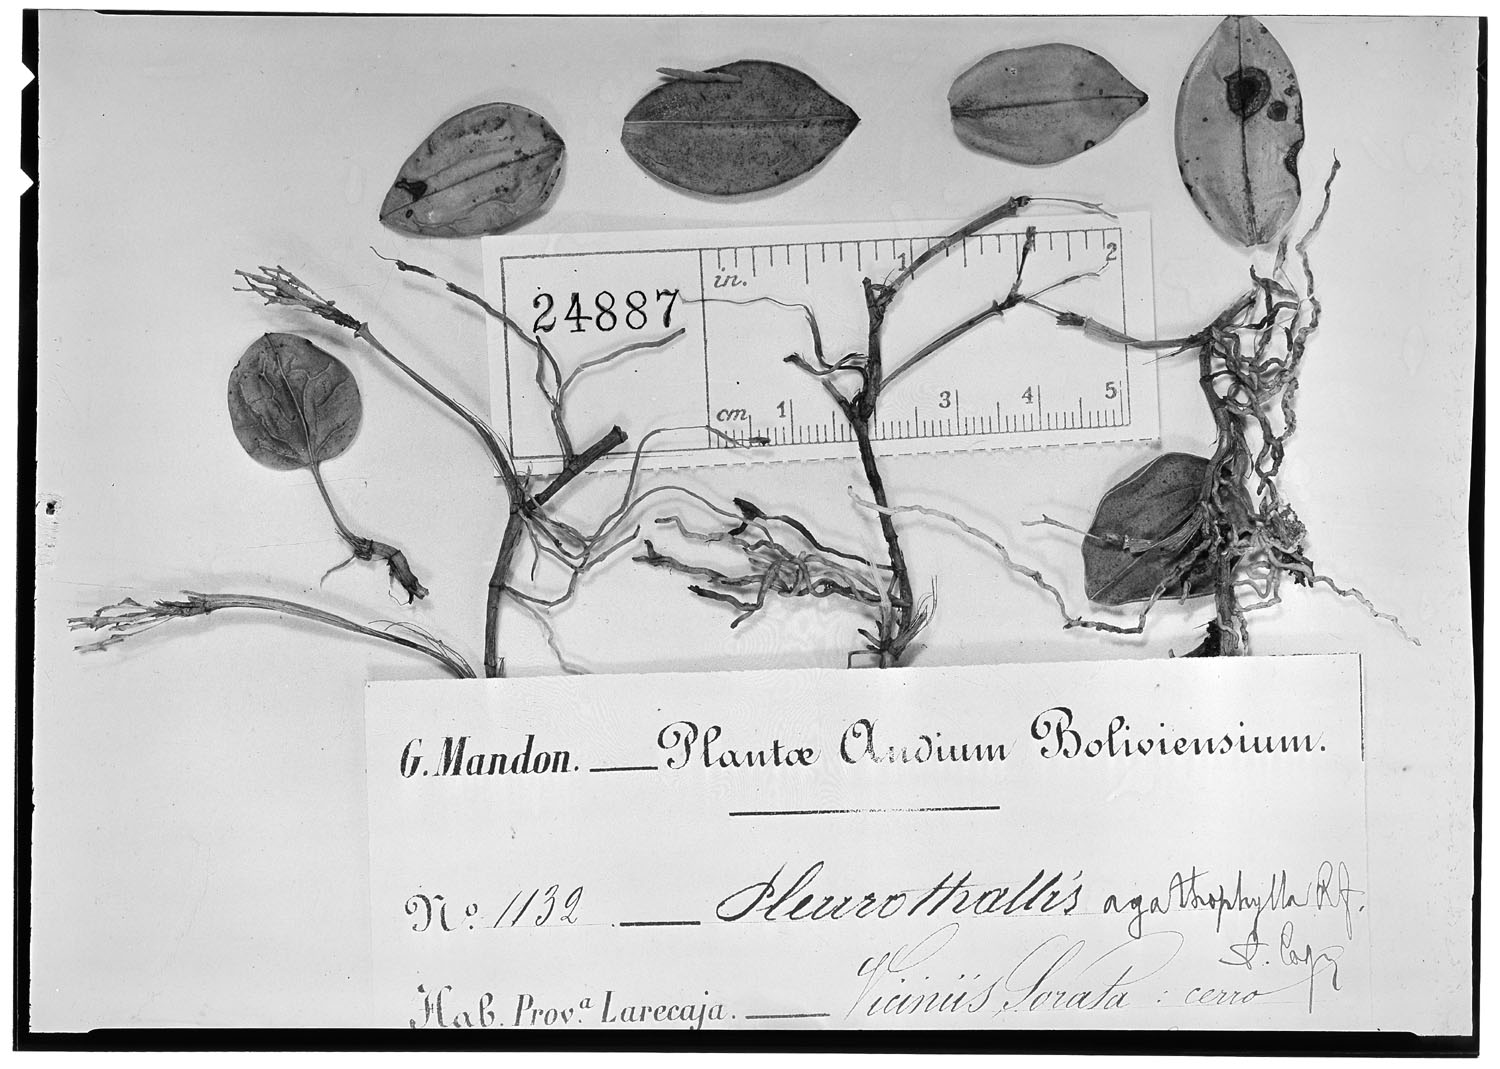 in. 1 2
24887
cm 1 3 4 5
G. Mandon. — Plantæ Andium Boliviensium.
No. 1132 — Pleurothallis agathophylla Rf.
Hab. Prov.a Larecaja. — Viciniis Sorata : cerro